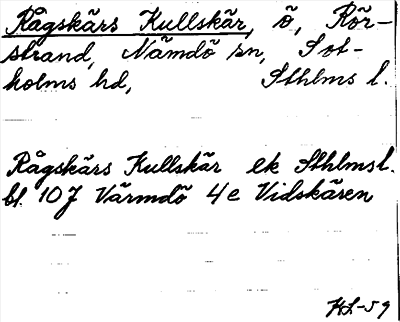 Rågskärs Kullskär, ö, Rör-
strand, Nämdö sn, Sot-
holms hd, Sthlms l.
Rågskärs Kullskär ek Sthlmsl.
bl. 10J Värmdö 4e Vidskären
HL-59